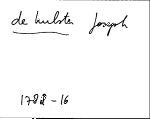 de hulster Joseph
1788-16